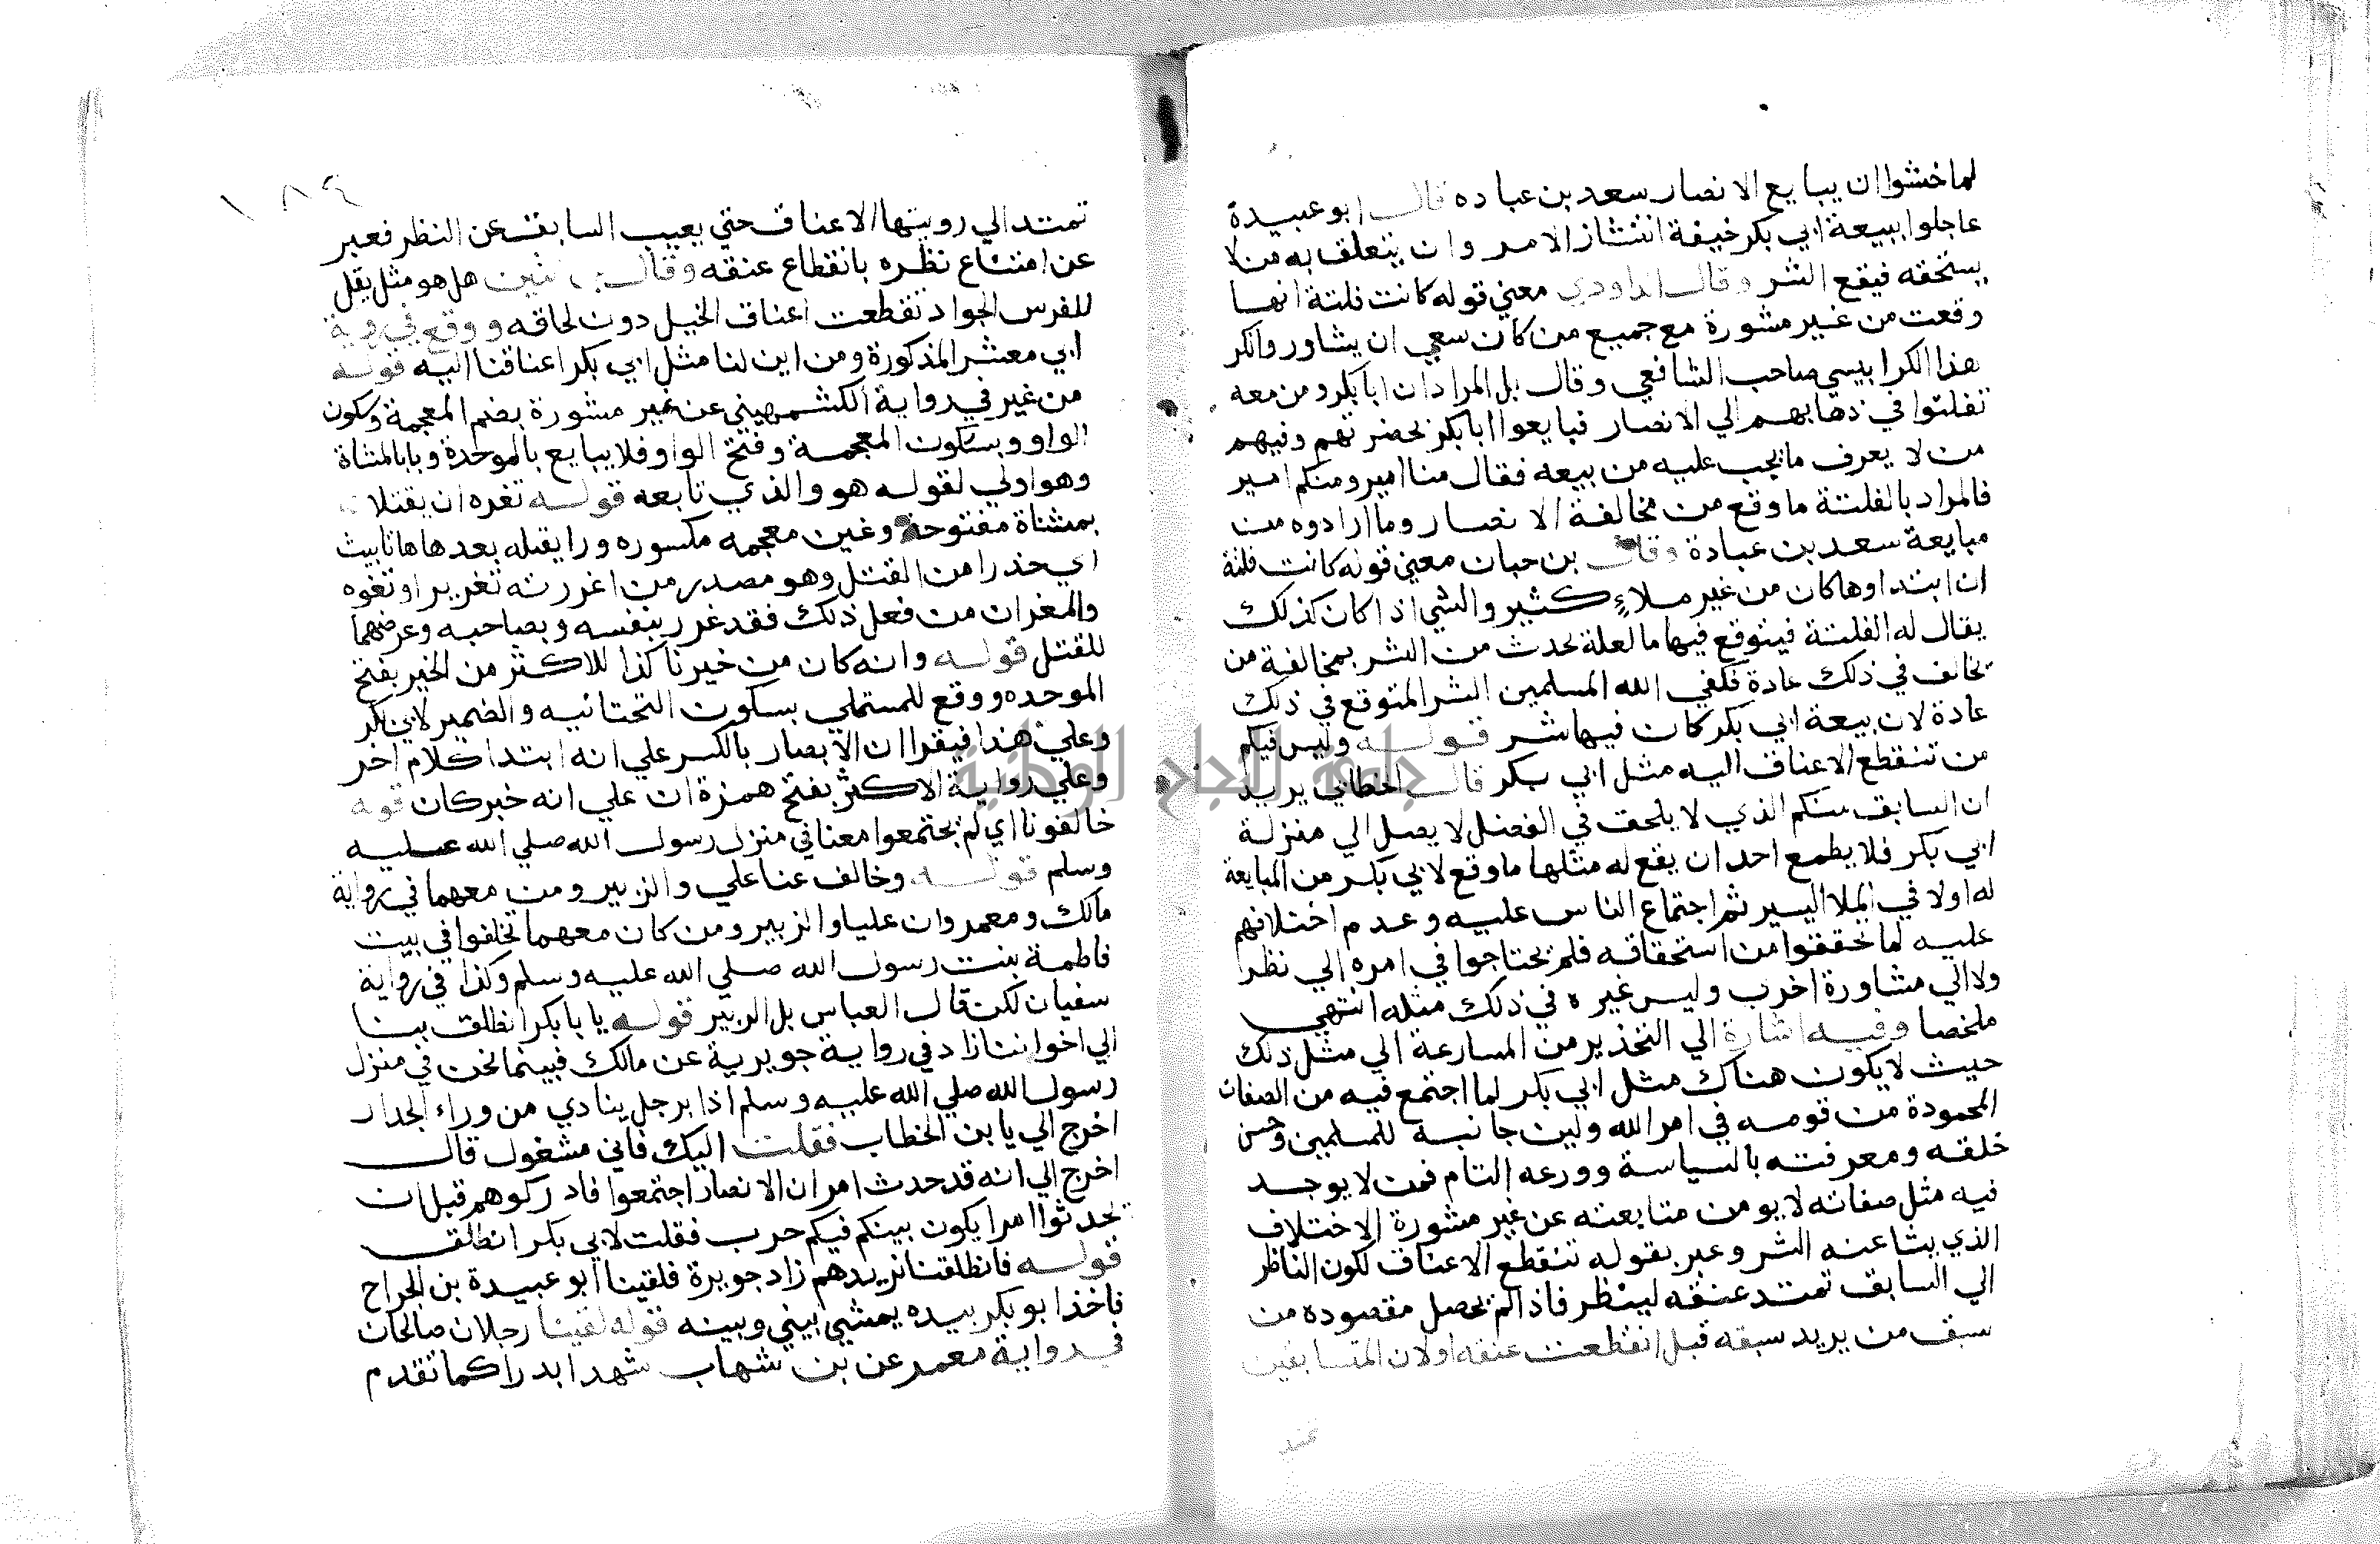 لما خشوا ان يبايع الانصار سعد بن عباده قال ابو عبيدة
عاجلوا ببيعة ابي بكر خيفة انتشار الامر وان يتعلق به من لا
يستحقه فيقع الشر وقال الداودي معني قوله كانت فلتة انها
وقعت من غير مشورة مع جميع من كان سعي ان يشاور وانكر
هذا الكرابيسي صاحب الشافعي وقال بل المراد ان ابا بكر ومن معه
تفلتوا في ذهابهم الي الانصار فبايعوا ابا بكر بحضرتهم وفيهم
من لا يعرف ما يجب عليه من بيعه فقال منا امير ومنكم امير
فالمراد بالفلتة ما وقع من مخالفة الانصار وما ارادوه من
مبايعة سعد بن عبادة وقال بن حبان معني قوله كانت فلتة
ان ابتداوها كان من غير ملاءٍ كثير والشي اذا كان كذلك
يقال له الفلتة فيتوقع فيها ما لعلة يحدث من الشر بمخالفة من
يخالف في ذلك عادة فكفي الله المسلمين الشر المتوقع في ذلك
عادة لان بيعة ابي بكر كان فيها شر قوله وليس فيكم
من تنقطع الاعناق اليه مثل ابي بكر قال الخطابي يريد
ان السابق منكم الذي لا يلحق في الفضل لا يصل الي منزلة
ابي بكر فلا يطمع احد ان يقع له مثلها ما وقع لابي بكر من المبايعة
له اولا في الملا اليسير ثم اجتماع الناس عليه وعدم اختلافهم
عليه لما تحققوا من استحقاقه فلم يحتاجوا في امره الي نظر
ولا الي مشاورة اخرب وليس غيره في ذلك مثله انتهي
ملخصا وفيه اشارة الي التحذير من المسارعة الي مثل ذلك
حيث لا يكون هناك مثل ابي بكر لما اجتمع فيه من الصفات
المحمودة من قومه في امر الله ولين جانبه للمسلمين وحسن
خلقه ومعرفته بالسياسة وورعه التام فمن لا يوجد
فيه مثل صفاته لا يومن من متابعته عن غير مشورة الاختلاف
الذي ينشا عنه الشر وعبر بقوله تنقطع الاعناق لكون الناظر
الي السابق تمتد عنقه لينظر فاذا لم يحصل مقصوده من
سبق من يريد سبقه قبل انقطعت عنقه او لان المتسابقين
تمتد
١٨٤
تمتد الي رويتها الاعناق حتي يغيب السابق عن النظر فعبر
عن امتناع نظره بانقطاع عنقه وقال بن التين هل هو مثل يقل
للفرس الجواد تقطعت اعناق الخيل دون لحاقه ووقع في رواية
ابي معشر المذكورة ومن اين لنا مثل ابي بكر اعناقنا اليه قوله
من غير في رواية الكشميهيني عن غير مشورة بضم المعجمة وسكون
الواو وبسكون المعجمة وفتح الواو فلا يبايع بالموحدة وبابالمثناة
وهو اولي لقوله هو والذي تابعه قوله تغره ان يقتلا
بمثناة مفتوحة وغين معجمه مكسوره ورا يقبله بعدها ها تانيث
اي حذرا من القتل وهو مصدر من اغررته تغريرا او تغوه
والمغزان من فعل ذلك فقد غرر بنفسه وبصاحبه وعرضهما
للقتل قوله وانه كان من خيرنا كذا للاكثر من الخير بفتح
الموحده ووقع للمستملي بسكون التحتانيه والضمير لابي بكر
وعلي هذا فيقرا ان الابصار بالكسر علي انه ابتدا كلام اخر
وعلي رواية الاكثر بفتح همزة ان علي انه خبر كان قوله
خالفونا اي لم يجتمعوا معنا في منزل رسول الله صلي الله عليه
وسلم قوله وخالف عنا علي والزبير ومن معهما في رواية
مالك ومعمر وان عليا والزبير ومن كان معهما تخلفوا في بيت
فاطمة بنت رسول الله صلي الله عليه وسلم وكذا في رواية
سفيان لكن قال العباس بل الزبير قوله يا با بكر انطلق بنا
الي اخواننا زاد في رواية جويرية عن مالك فبينما نحن في منزل
رسول الله صلي الله عليه وسلم اذا برجل ينادي من وراء الجدار
اخرج الي يا بن الخطاب فقلت اليك فاني مشغول قال
اخرج الي انه قد حدث امر ان الانصار اجتمعوا فادركوهم قبل ان
يحدثوا امرا يكون بينكم فيكم حرب فقلت لابي بكر انطلق
قوله فانطلقنا نريدهم زاد جويرة فلقينا ابو عبيدة بن الجراح
فاخذ ابو بكر بيده يمشي بيني وبينه قوله لقينا رجلان صالحان
في رواية معمر عن بن شهاب شهدا بدرا كما تقدم
جامعة النجاح الوطنية